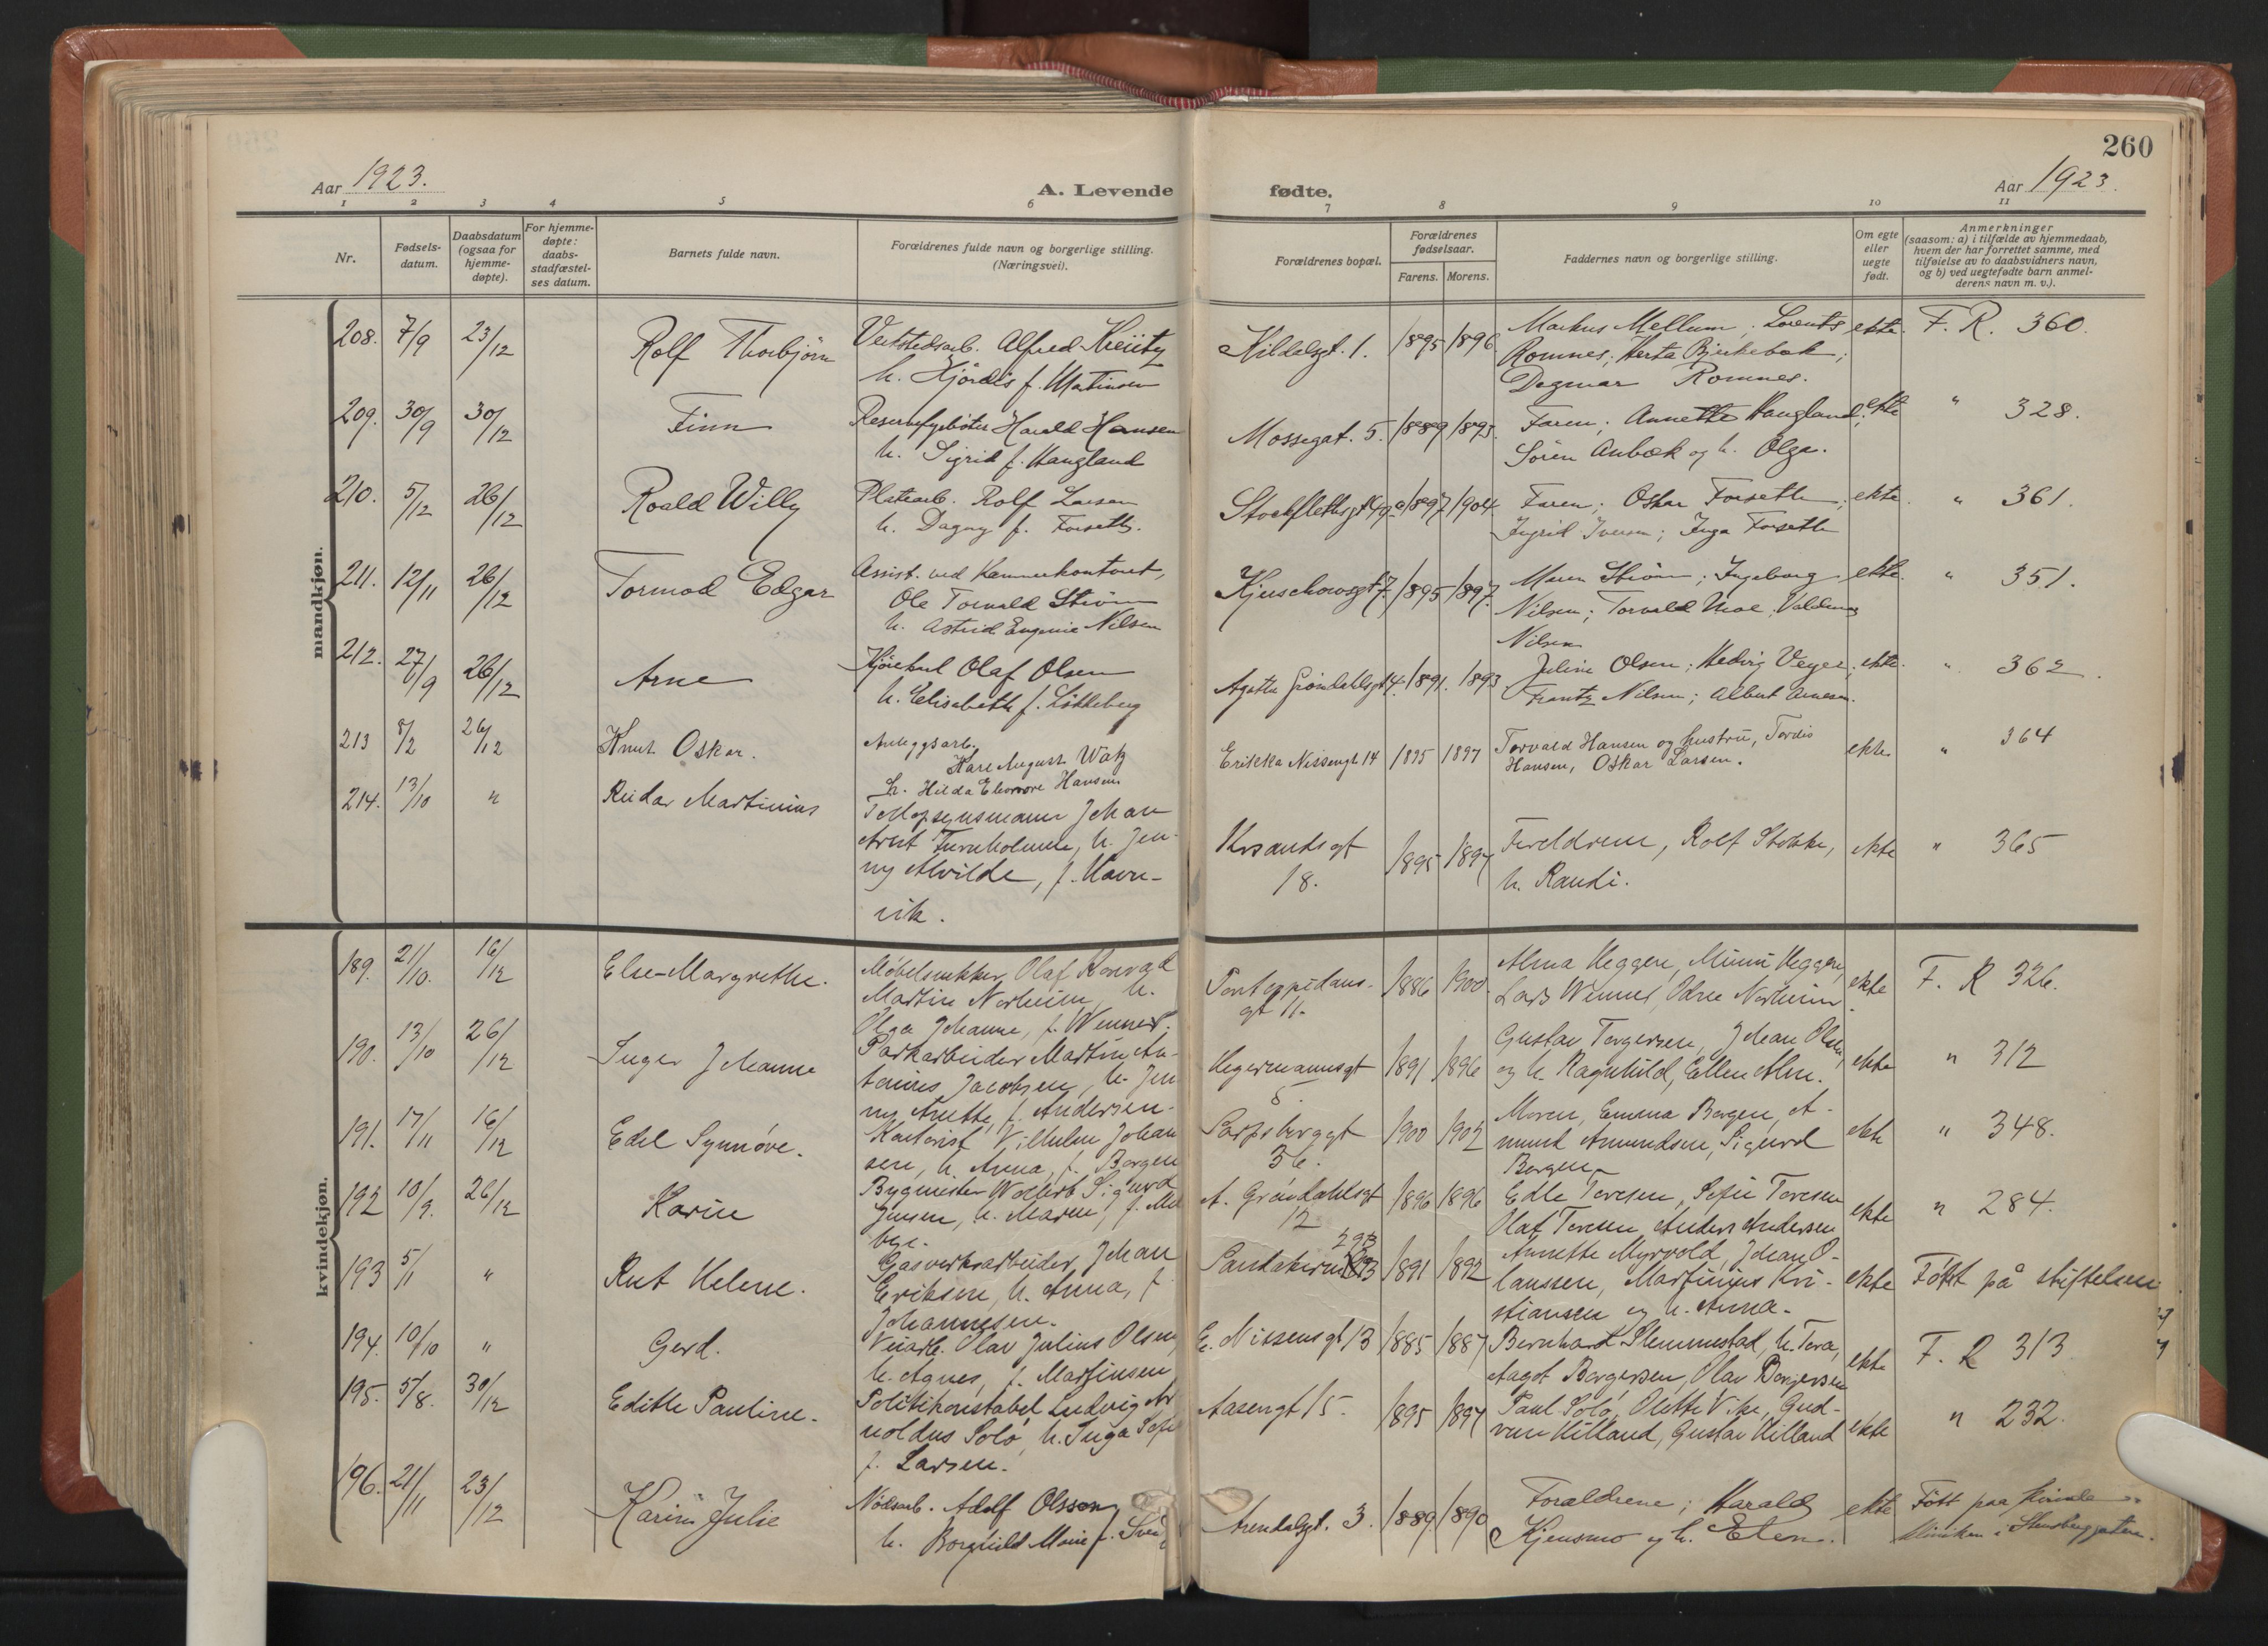 260
Aar 1923.
A. Levende fødte.
Aar 1923.
1 2 3 4 5 6 7 8 9 10 11
Nr.
Fødselsdatum.
Daabsdatum (ogsaa for hjemmedøpte).
For hjemmedøpte: daabsstadfæstelses datum.
Barnets fulde navn.
Forældrenes fulde navn og borgerlige stilling. (Næringsvei).
Forældrenes bopæl.
Forældrenes fødselsaar.
Farens. Morens.
Faddernes navn og borgerlige stilling.
Om egte eller uegte født.
Anmerkninger
(saasom: a) i tilfælde av hjemmedaab, hvem der har forrettet samme, med tilføielse av to daabsvidners navn, og b) ved uegtefødte barn anmelderens navn m. v.).
mandkjøn.
208. 7/9 23/12 Rolf Thorbjörn
Alfred
h. Hjördis f. Martinsen
Kildalsgt. 1. 1895 1896
Markus Mellum; Lorents
Romnes; Herta Bjerkebæk;
Dagmar Romnes.
ekte. F. R. 360.
209. 30/9 30/12 Finn
Harald Hansen
h. Sigrid f. Haugland
Mossegat. 5. 1889 1893.
Faren; Annette Haugland;
Sören Aubæk og h. Olga.
ekte " 328.
210. 5/12 26/12 Roald Willy
Platearb. Rolf Larsen
h. Dagny f. Forseth.
Stockflethsgt 49a 1897 1904
Faren; Oskar Forseth;
Ingrid Iversen; Inga Forseth
ekte. " 361.
211. 12/11 26/12 Tormod Edgar
Assist. ved Kammerkontoret,
Ole Torvald Ström
h. Astrid Eugenie Nilsen
Kjerschowsgt 7. 1895 1897.
Moren Ström; Ingeborg
Nilsen; Torvald Moe; Valdemar
Nilsen
ekte. " 351.
212. 27/9 26/12 Arne
Kjörekarl Olaf Olsen
h. Elisabeth f. Lökkeberg
Agathe Gröndahlsgt 14. 1891. 1893
Juline Olsen; Hedvig Veger;
Frantz Nilsen; Albert Arnesen.
ekte. " 362.
213 8/2 26/12 Knut Oskar.
Anleggsarb.
Karl August Watz
h. Hilda Eleonore Hansen
Erikka Nissensgt 14 1895 1897
Torvald Hansen og hustru, Tordis
Hansen, Oskar Larsen.
ekte " 364
214. 13/10 " Reidar Martinius
Tollopsynsmann Johan
Arnt h. Jen-
ny Alvilde, f. Havn-
vik.
Krsandsgt
18.
1895 1897
Foreldrene, Rolf Stokke,
h. Randi.
ekte " 365
kvindekjøn.
189. 21/10. 16/12 Else-Margrethe.
Møbelsnekker Olaf Konrad
Martin Norheim, h.
Olga Johanne, f. Wennes.
Pontoppidans-
gt 11.
1886 1900.
Alma Heggen, Minni Heggen,
Lars Wennes, Odne Norheim
ekte F. R 326.
190. 13/10 26/12 Inger Johanne
Parkarbeider Martin An-
tonius Jacobsen, h. Jen-
ny Anette, f. Andersen.
Hegermannsgt
5.
1891 1896
Gustav Torgersen, Johan Olsen
og h. Ragnhild, Ellen Alm.
ekte " 312
191. 17/11 16/12 Edel Synnøve.
Kontorist Vilhelm Johan
sen, h. Anna, f. Borgen
Sarpsborggt
36.
1900 1902
Moren, Emma Borgen, A-
mund Amundsen, Sigurd
Borgen
ekte " 348.
192 10/9. 26/12 Karin
Bygmester Sigurd
Jensen, h. Maren, f. Mel
bye.
A. Gröndahlsgt
12
1896 1896
Edle Toresen, Sofie Toresen
Olaf Toresen Anders Andersen
ekte " 284.
193 5/11 " Rut Helene.
Gasverksarbeider, Johan
Eriksen, h. Anna, f.
Johannesen.
293
1891 1892
Annette Myrvold, Johan O-
laussen, Martinius Kri-
stiansen og h. Anna.
ekte Født på stiftelsen
194. 10/10 " Gerd.
Veiarb. Olav Julius Olsen
h. Agnes, f. Martinsen
E. Nissensgt 13 1885 1887
Bernhard Slemmestad, h. Tora,
Aagot Borgersen, Olav Borgersen
ekte F. R 313
195. 5/8. 30/12 Edith Pauline.
Politikonstabel Ludvig Ar
noldus Solö, h. Inga Sofie
f. Larsen.
Aasengt 15. 1895 1897
Paul Solö, Olette Vike, Gud-
run Hilland, Gustav Hilland
ekte " 232.
196. 21/11 23/12 Karin Julie
Nödsarb. Adolf Olsson
h. Borghild Marie f.
Arendalsgt. 3. 1889 1890
Forældrene; Harald
Kjensmo og h. Elen.
ekte Född paa Kvinde
kliniken i Stensberggaten.